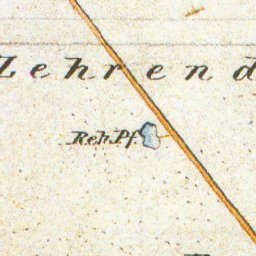 Zehrend
Reh.Pf.